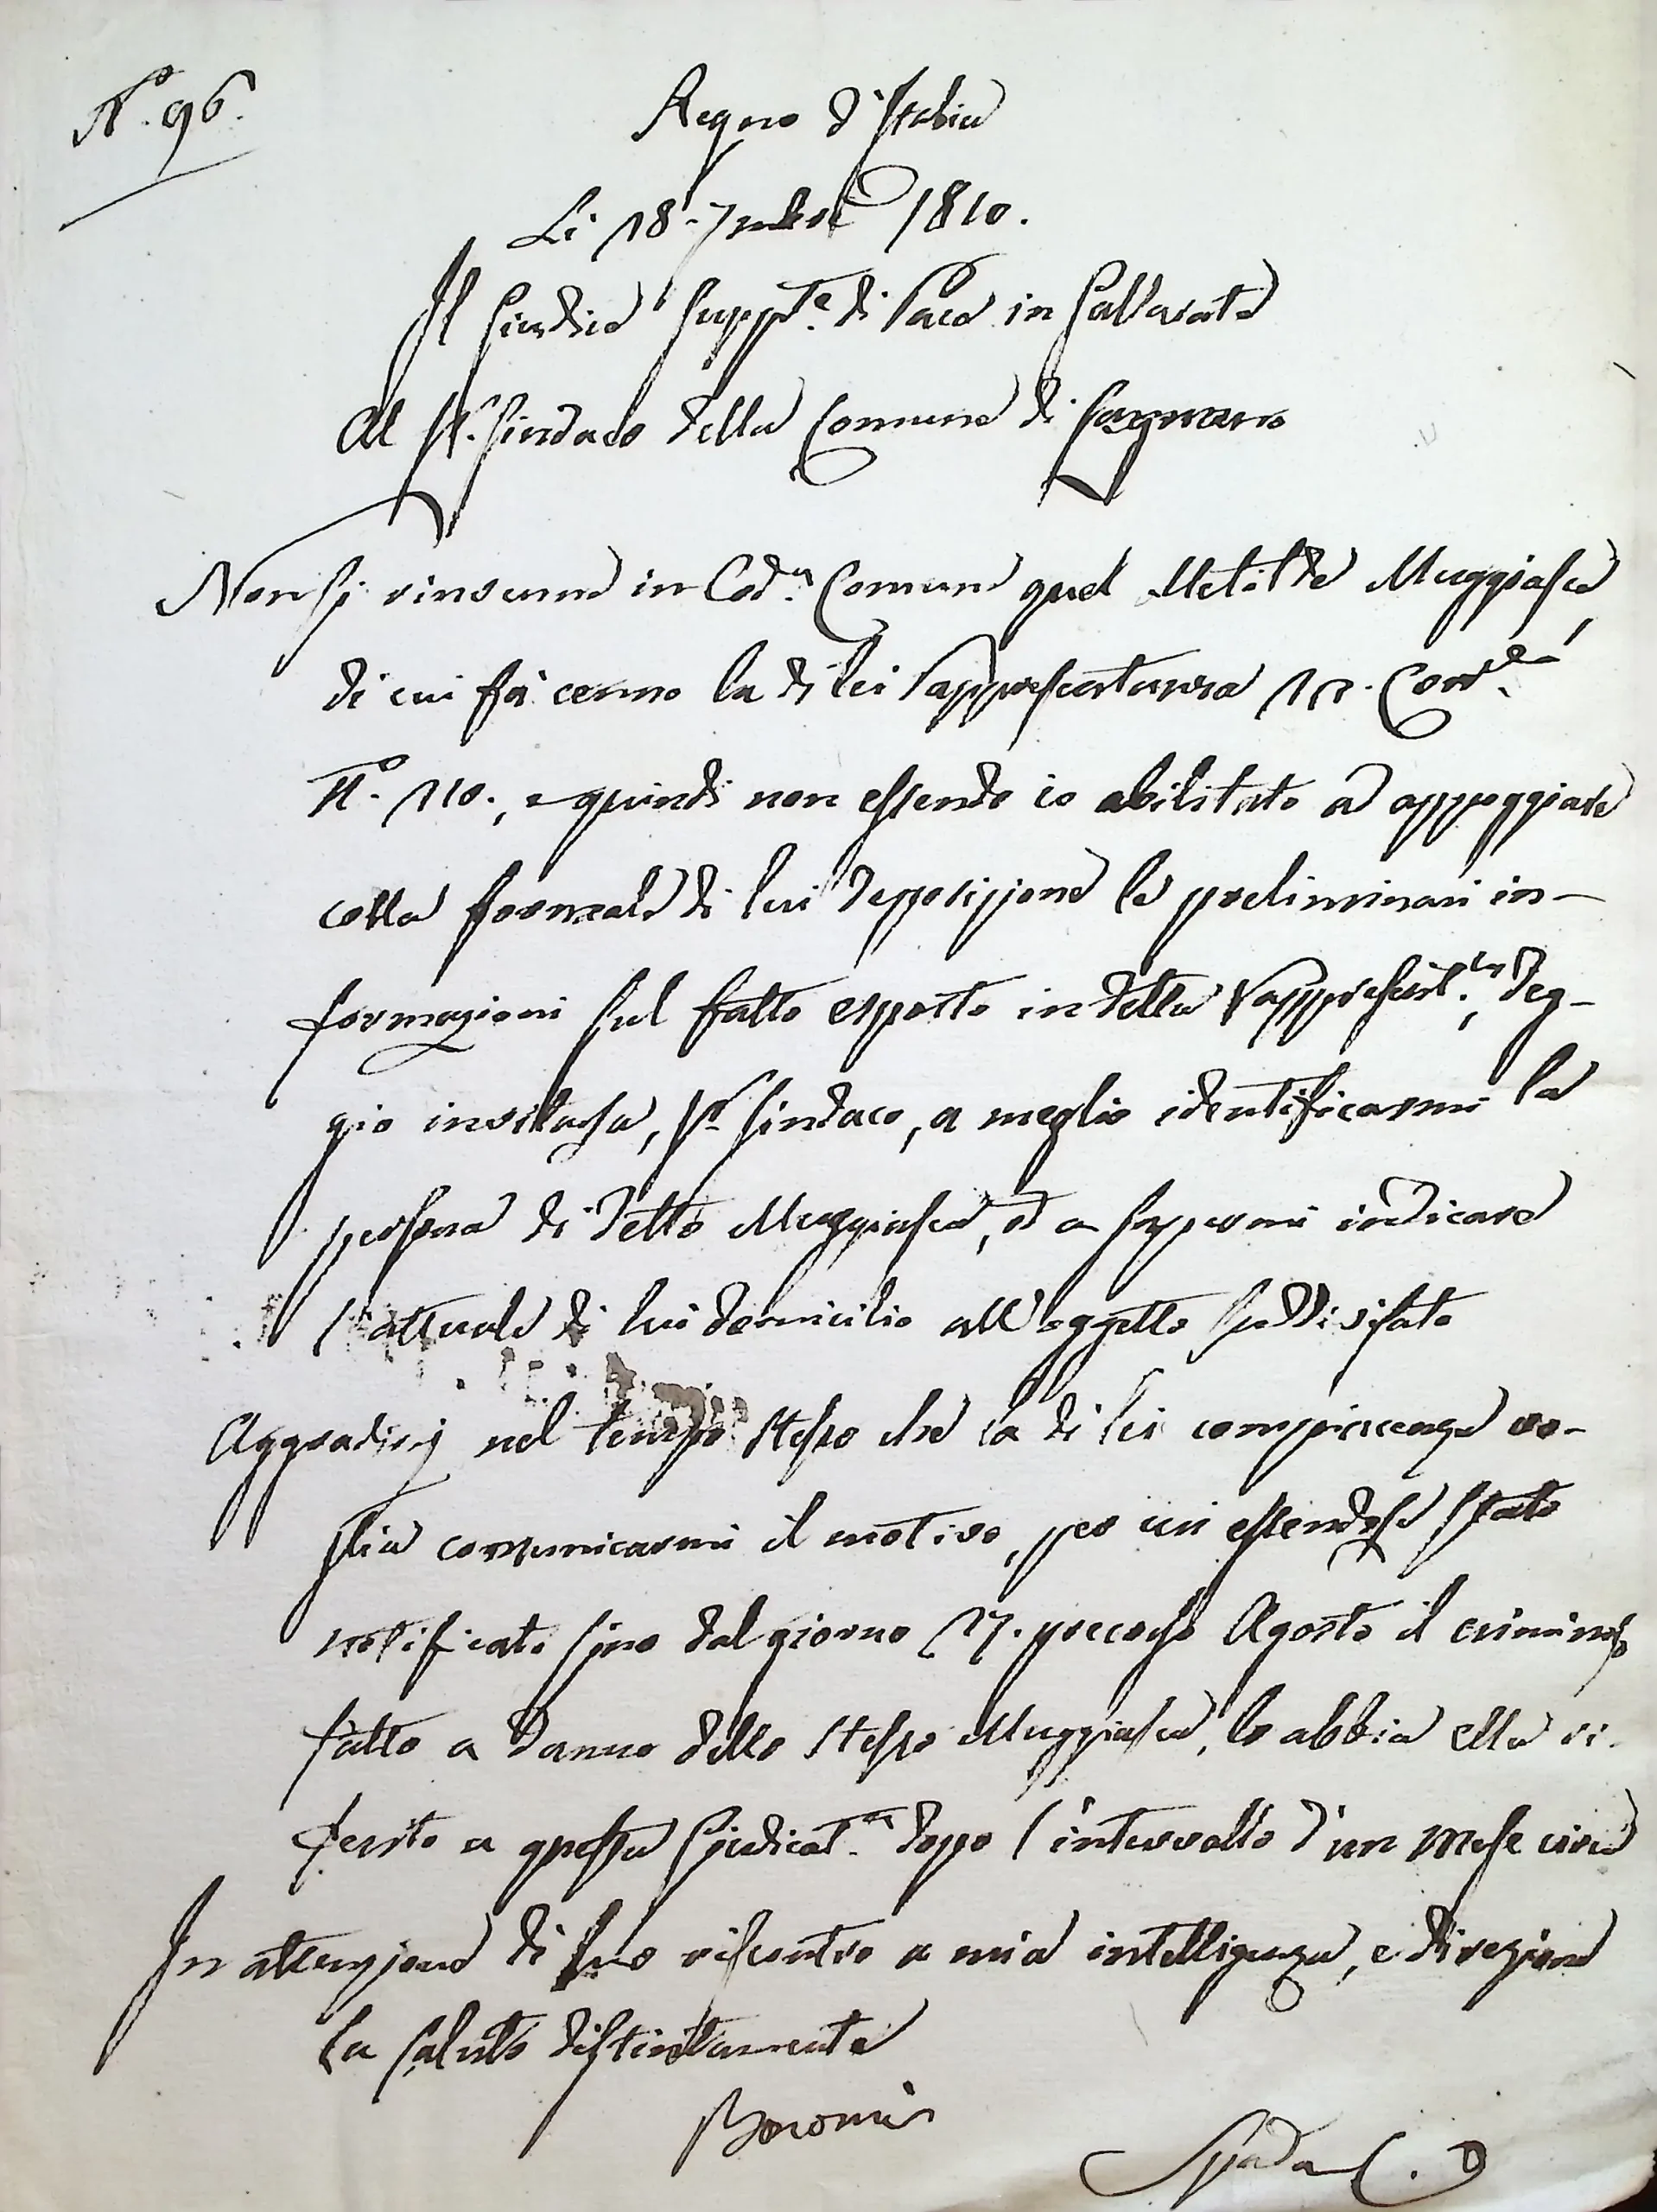 N.° 96.
Regno d'Italia
Li 18. 7mbre 1810.
Il Giudice Supp.te di Pace in Gallarate
Al S.r Sindaco della Comune di
Non si rinvenne in Cod.a Comune quel Metilde Muggiasca,
di cui fà cenno la di lei rappresentanza Corr.e
N.° 110., e quindi non essendo io abilitato a appoggiare
colla formale di lui depposizione le preliminari in-
formazioni sul fatto esposto in detta rappresent.za, deg-
gio invitarla, S.r Sindaco, a meglio identificarmi la
persona di detto Muggiasca, ed a sappermi indicare
l'attuale di lui domicilio all'oggetto suddivisato
Aggradirei nel tempo stesso che la di lei compiacenza vo-
glia comunicarmi il motivo, per cui essendole stato
notificato sino dal giorno 17. precorso Agosto il criminoso
fatto a danno dello stesso Muggiasca, lo abbia ella ri-
ferito a questa Giudicat.a doppo l'intervallo d'un mese circa
In attenzione di suo riscontro a mia intelligenza, e direzione
la saluto distintamente
Spada C.